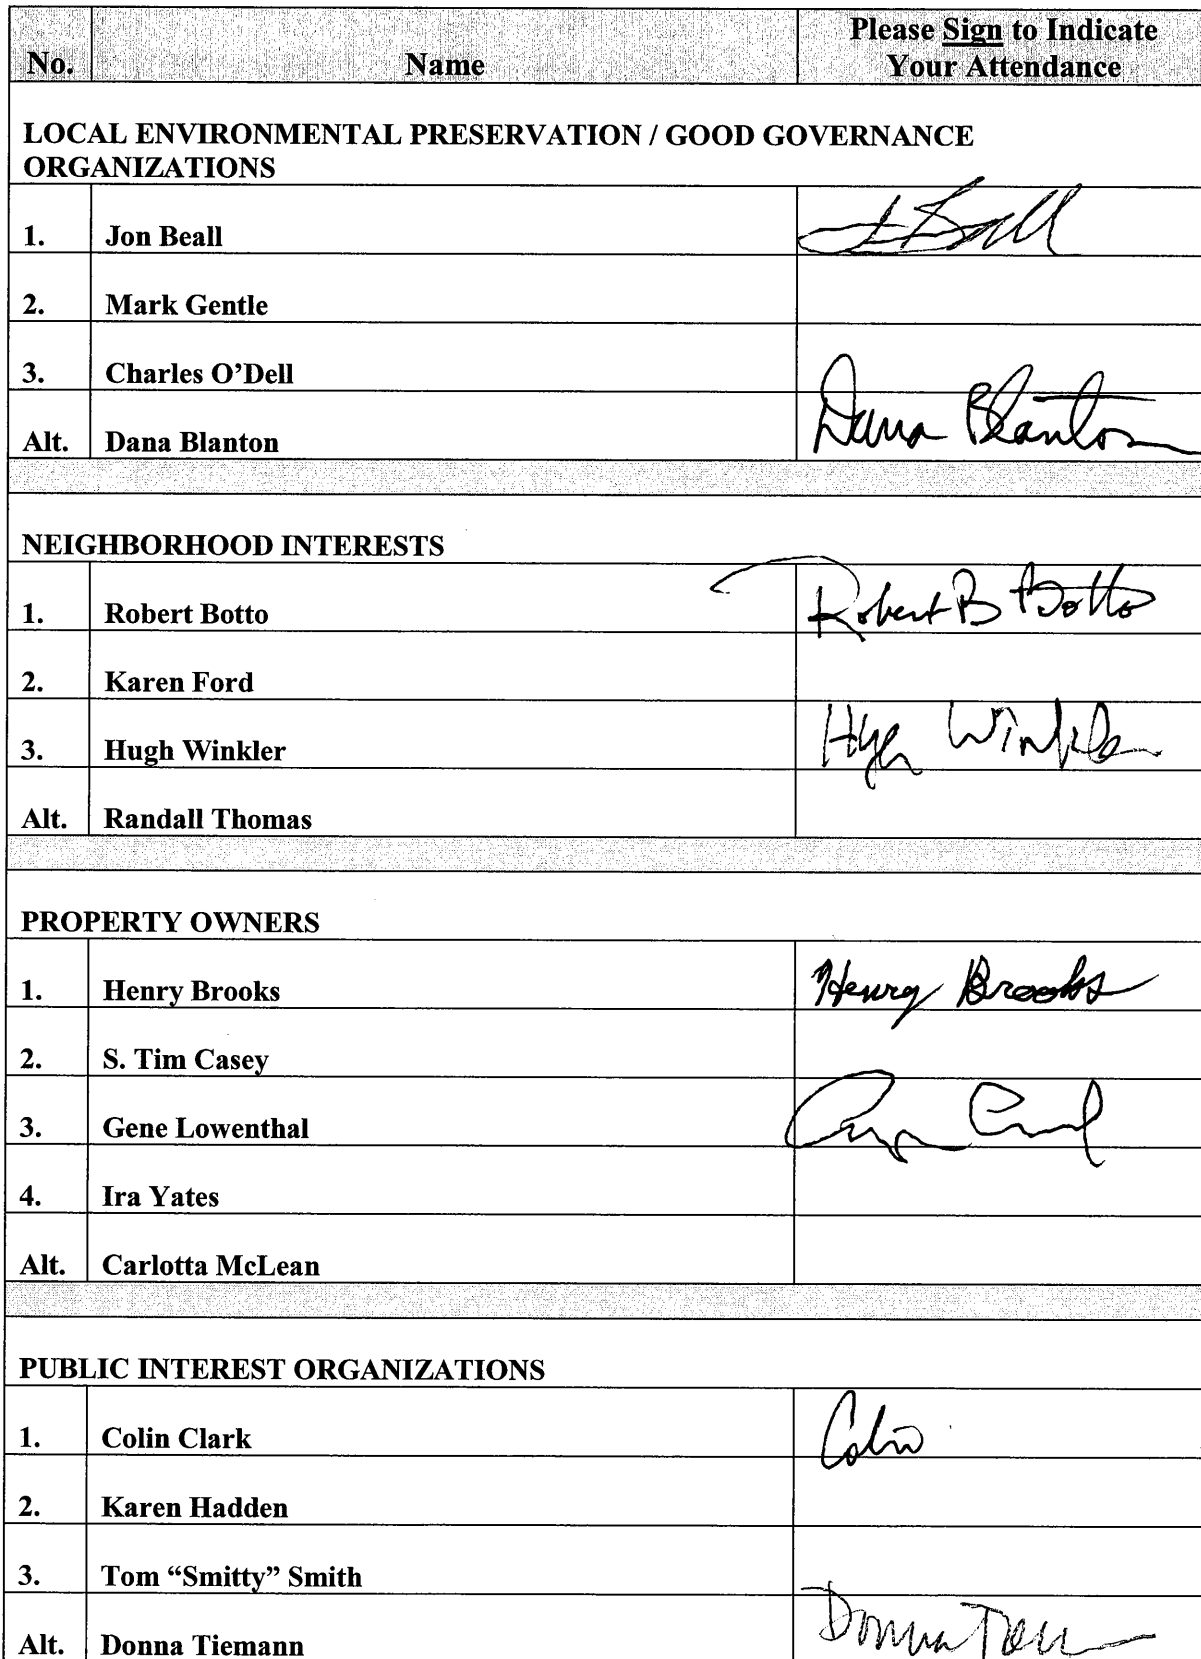 No. Name Please Sign to Indicate
Your Attendance
LOCAL ENVIRONMENTAL PRESERVATION / GOOD GOVERNANCE
ORGANIZATIONS
1. Jon Beall J Beall
2. Mark Gentle
3. Charles O’Dell
Alt. Dana Blanton Dana Blanton
NEIGHBORHOOD INTERESTS
1. Robert Botto Robert B Botto
2. Karen Ford
3. Hugh Winkler Hugh Winkler
Alt. Randall Thomas
PROPERTY OWNERS
1. Henry Brooks Henry Brooks
2. S. Tim Casey
3. Gene Lowenthal
4. Ira Yates
Alt. Carlotta McLean
PUBLIC INTEREST ORGANIZATIONS
1. Colin Clark Colin
2. Karen Hadden
3. Tom “Smitty” Smith
Alt. Donna Tiemann Donna